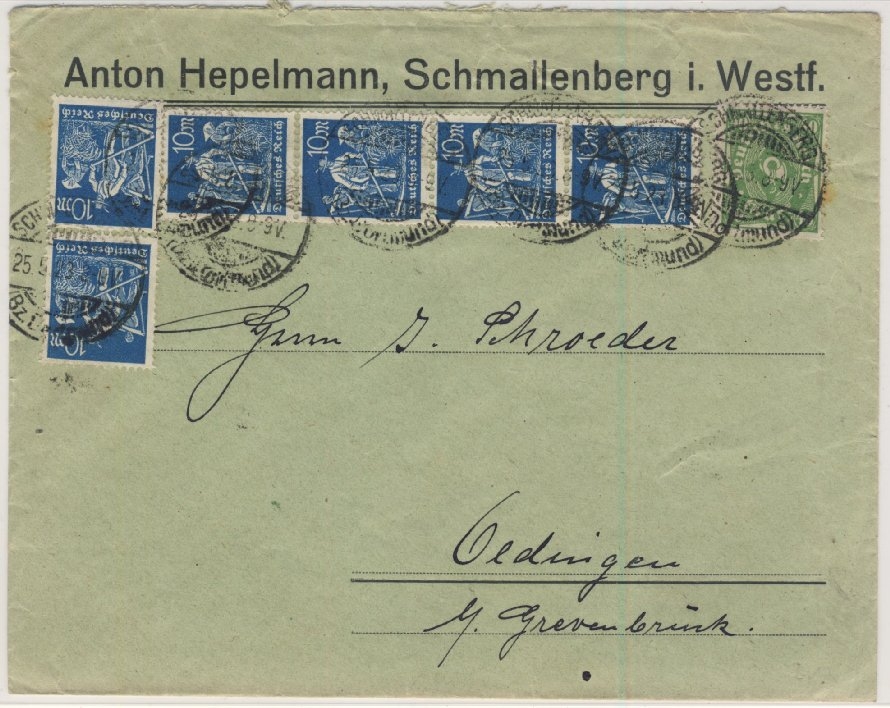 Anton Hepelmann, Schmallenberg i. Westf.
Deutsches Reich
10M
10M
Deutsches Reich
10M
Deutsches Reich
10M
Deutsches Reich
10M
Deutsches Reich
Deutsches Reich
10M
25.5.23
Herrn J. Schroeder
Oedingen
b/ Grevenbrück.